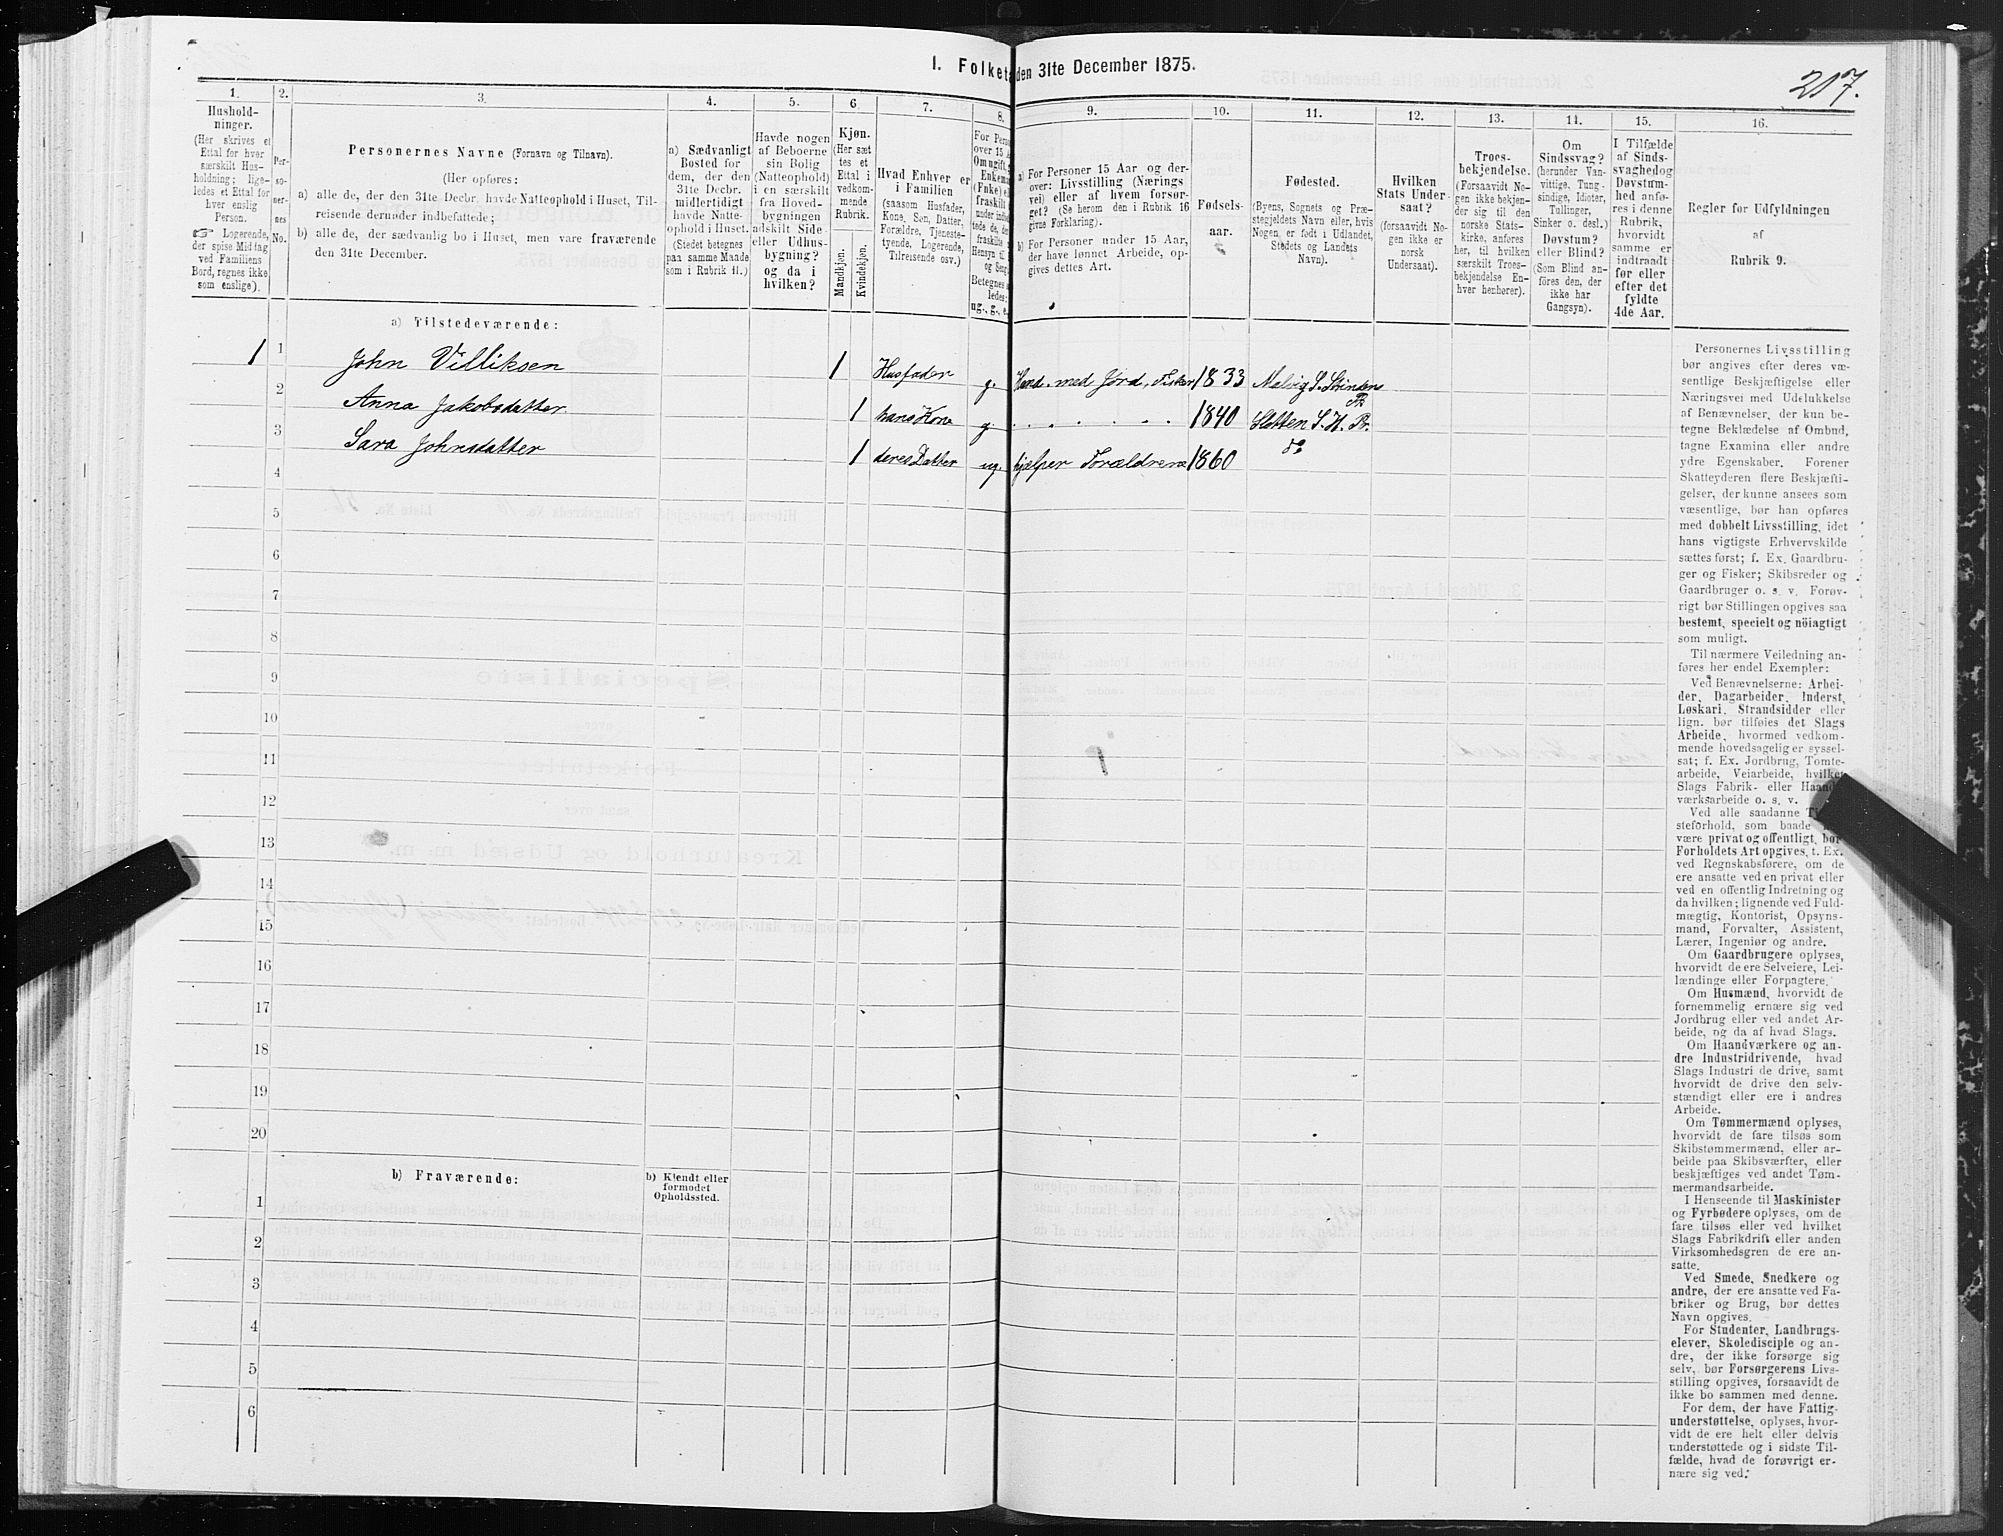 I. Folketa den 31te December 1875.
217.
1. 2. 3. 4. 5. 6 7. 8. 9. 10. 11. 12. 13. 14. 15. 16.
Hushold-
ninger.
(Her skrives et
Ettal for hver
særskilt Hus-
holdning; lige-
ledes et Ettal for
hver enslig
Person.
☞ Logerende,
der spise Middag
ved Familiens
Bord, regnes ikke
som enslige).
Per-
so-
ner-
nes
No.
Personernes Navne (Fornavn og Tilnavn).
(Her opføres:
a) alle de, der den 31te Decbr. havde Natteophold i Huset, Til-
reisende derunder indbefattede;
b) alle de, der sædvanlig bo i Huset, men vare fraværende
den 31te December.
a) Sædvanligt
Bosted for
dem, der den
31te Decbr.
midlertidigt
havde Natte-
ophold i Huset.
(Stedet betegnes
paa samme Maade
som i Rubrik 11.)
Havde nogen
af Beboerne
sin Bolig
(Natteophold)
i en særskilt
fra Hoved-
bygningen
adskilt Side-
eller Udhus-
bygning?
og da i
hvilken?
Kjøn.
(Her sæt
tes et
Ettal i
vedkom-
mende
Rubrik.
Mandkjøn.
Kvindekjøn.
Hvad Enhver er
i Familien
(saasom Husfader,
Kone, Søn, Datter,
Forældre, Tjeneste-
tyende, Logerende,
Tilreisende osv.)
For Perso
over 15 A
Om ugift,
Enkema
(Enke) e
fraskilt
under indbe
tede de, de
fraskilte
Hensyn til
og Seng
Betegnes s
ledes:
ug., g., e.
a) For Personer 15 Aar og der-
over: Livsstilling (Nærings
vei) eller af hvem forsør-
get? (Se herom den i Rubrik 16
givne Forklaring).
b) For Personer under 15 Aar,
der have lønnet Arbeide, op-
gives dettes Art.
Fødsels-
aar.
Fødested.
(Byens, Sognets og Præ-
stegjeldets Navn eller, hvis
Nogen er født i Udlandet,
Stedets og Landets
Navn).
Hvilken
Stats Under-
saat?
(forsaavidt No-
gen ikke er
norsk
Undersaat).
Troes-
bekjendelse.
(Forsaavidt No-
gen ikke bekjen-
der sig til den
norske Stats-
kirke, anføres
her, til hvilken
særskilt Troes-
bekjendelse En-
hver henhører).
Om
Sindssvag?
(herunder Van-
vittige, Tung-
sindige, Idioter,
Tullinger,
Sinker o. desl.)
Døvstum?
eller Blind?
(Som Blind an-
føres den, der
ikke har
Gangsyn).
I Tilfælde
af Sinds-
svaghed og
Døvstum-
hed anfø-
res i denne
Rubrik,
hvorvidt
samme er
indtraadt
før eller
efter det
fyldte
4de Aar.
Regler for Udfyldningen
af
Rubrik 9.
a) Tilstedeværende:
1 1 John Villiksen 1 Husfader g. Husd. med Jord, Fisker 1833 Malvig S. Strinden
Pr
2 Anna Jakobsdatter 1 hans Kone g. . . . . . . 1840 Sletten S. H. Pr.
3 Sara Johnsdatter 1 deres Datter ug. hjælper Forældrene 1860 do
4
5
6
7
8
9
10
11
12
13
14
15
16
17
18
19
20
b) Fraværende:
b) Kjendt eller
formodet
Opholdssted.
1
2
3
4
5
6
Personernes Livsstilling
bør angives efter deres væ-
sentlige Beskjæftigelse eller
Næringsvei med Udelukkelse
af Benævnelser, der kun be-
tegne Beklædelse af Ombud,
tagne Examina eller andre
ydre Egenskaber. Forener
Skatteyderen flere Beskjæfti-
gelser, der kunne ansees som
væsentlige, bør han opføres
med dobbelt Livsstilling, idet
hans vigtigste Erhvervskilde
sættes først; f. Ex. Gaardbru-
ger og Fisker; Skibsreder og
Gaardbruger o. s. v. Forøv-
rigt bør Stillingen opgives saa
bestemt, specielt og nöiagtigt
som muligt.
Til nærmere Veiledning an-
føres her endel Exempler:
Ved Benævnelserne: Arbei-
der, Dagarbeider, Inderst,
Løskari, Strandsidder eller
lign. bør tilføies det Slags
Arbeide, hvormed vedkom-
mende hovedsagelig er syssel-
sat; f. Ex. Jordbrug, Tomte-
arbeide, Veiarbeide, hvilket
Slags Fabrik- eller Haand-
værksarbeide o. s. v.
Ved alle saadanne
steforhold, som baade
være privat og offentligt, bør
Forholdets Art opgives, t. Ex.
ved Regnskabsførere, om de
ere ansatte ved en privat eller
ved en offentlig Indretning og
da hvilken; lignende ved Fuld-
mægtig, Kontorist, Opsyns-
mand, Forvalter, Assistent,
Lærer, Ingeniør og andre.
Om Gaardbrugere oplyses,
hvorvidt de ere Selveiere, Lei-
lændinge eller Forpagtere.
Om Husmænd, hvorvidt de
fornemmelig ernære sig ved
Jordbrug eller ved andet Ar-
beide, og da af hvad Slags.
Om Haandværkere og an-
dre Industridrivende, hvad
Slags Industri de drive, samt
hvorvidt de drive den selv-
stændigt eller ere i andres
Arbeide.
Om Tømmermænd oplyses,
hvorvidt de fare tilsøs som
Skibstømmermænd, eller ar-
beide paa Skibsværfter, eller
beskjæftiges ved andet Tøm-
mermandsarbeide.
I Henseende til Maskinister
og Fyrbødere oplyses, om de
fare tilsøs eller ved hvilket
Slags Fabrikdrift eller anden
Virksomhedsgren de ere an-
satte.
Ved Smede, Snedkere og
andre, der ere ansatte ved Fa-
briker og Brug, bør dettes
Navn opgives.
For Studenter, Landbrugs-
elever, Skoledisciple og an-
dre, der ikke forsørge sig
selv, bør Forsørgerens Livs-
stilling opgives, forsaavidt de
ikke bo sammen med denne.
For dem, der have Fattig-
understøttelse, oplyses, hvor-
vidt de ere helt eller delvis
understøttede og i sidste Til-
fælde, hvad de forøvrigt er-
nære sig ved.